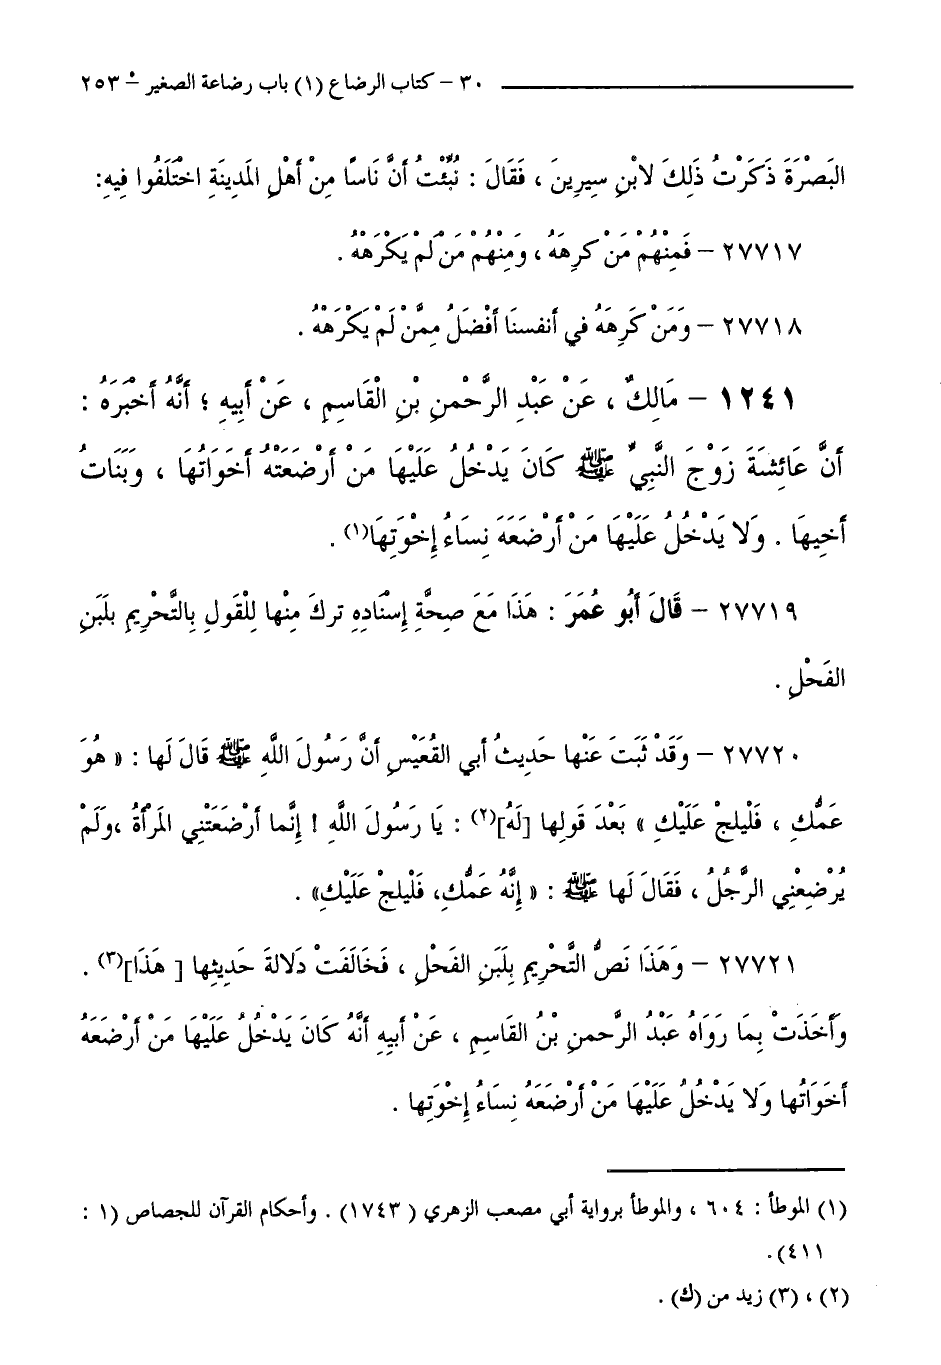 ٣٠ – كتاب الرضاع (١) باب رضاعة الصغير – ٢٥٣
البَصْرَةَ ذَكَرْتُ ذَلِكَ لابْنِ سِيرِينَ ، فَقَالَ : نُبِّئْتُ أَنَّ نَاسًا مِنْ أَهْلِ المَدِينَةِ اخْتَلَفُوا فِيهِ:
٢٧٧١٧ – فَمِنْهُمْ مَنْ كَرِهَهُ ، وَمِنْهُمْ مَنْ لَمْ يَكْرَهْهُ .
٢٧٧١٨ – وَمَنْ كَرِهَهُ في أنفسنَا أفْضَلُ مِمَّنْ لَمْ يَكْرَهْهُ .
١٢٤١ – مَالِكٌ ، عَنْ عَبْدِ الرَّحْمنِ بْنِ الْقَاسِمِ ، عَنْ أَبِيهِ ؛ أَنَّهُ أَخْبَرَهُ :
أَنَّ عَائِشَةَ زَوْجَ النَّبِيِّ ﷺ كَانَ يَدْخُلُ عَلَيْهَا مَنْ أَرْضَعَتْهُ أَخَوَاتُهَا ، وَبَنَاتُ
أَخِيهَا . وَلا يَدْخُلُ عَلَيْهَا مَنْ أَرْضَعَهَ نِسَاءُ إِخْوَتِهَا(١) .
٢٧٧١٩ – قَالَ أَبُو عُمَرَ : هَذَا مَعَ صِحَّةِ إِسْنَادِهِ تركَ مِنْها لِلْقَولِ بِالتَّحْرِيمِ بِلَبَنِ
الفَحْلِ .
٢٧٧٢٠ – وَقَدْ ثَبَتَ عَنْها حَدِيثُ أبي القُعَيْسِ أنَّ رَسُولَ اللَّهِ ﷺ قَالَ لَها : « هُوَ
عَمُّكِ ، فَلْيلجْ عَلَيْكِ » بَعْدَ قَولِها [لَهُ](٢) : يَا رَسُولَ اللَّهِ ! إنَّما أرْضَعَتْنِي المَرْأةُ ،وَلَمْ
يُرْضِعْنِي الرَّجُلُ ، فَقَالَ لَها ﷺ : « إِنَّهُ عَمُّكِ، فَلْيلجْ عَلَيْكِ» .
٢٧٧٢١ – وَهَذَا نَصُّ التَّحْرِيمِ بِلَبَنِ الفَحْلِ ، فَخَالَفَتْ دَلالةَ حَدِيثِها [ هَذَا](٣) .
وَأَخَذَتْ بِمَا رَوَاهُ عَبْدُ الرَّحمنِ بْنُ القَاسِمِ ، عَنْ أَبِيهِ أَنَّهُ كَانَ يَدْخُلُ عَلَيْهَا مَنْ أَرْضَعَهُ
أَخَوَاتُها وَلَا يَدْخُلُ عَلَيْهَا مَنْ أَرْضَعَهُ نِسَاءُ إِخْوَتِها .
(١) الموطأ : ٦٠٤ ، والموطأ برواية أبي مصعب الزهري ( ١٧٤٣) . وأحكام القرآن للجصاص (١ :
٤١١).
(٢) ، (٣) زيد من (ك) .